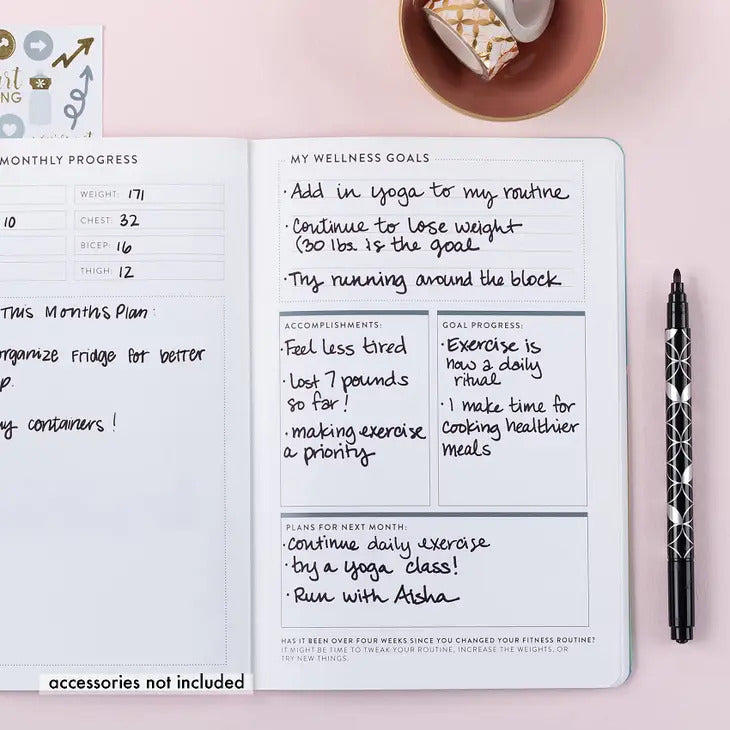 MONTHLY PROGRESS
WEIGHT: 171
10 CHEST: 32
BICEP: 16
THIGH: 12
This Months Plan:
organize Fridge for better
containers!
MY WELLNESS GOALS
· Add in yoga to my routine
· Continue to lose weight
(30 lbs. is the goal
· Try running around the block
ACCOMPLISHMENTS:
· Feel less tired
· lost 7 pounds
so far!
· making exercise
a priority
GOAL PROGRESS:
· Exercise is
now a daily
ritual
· I make time for
cooking healthier
meals
PLANS FOR NEXT MONTH:
· continue daily exercise
· try a yoga class!
· Run with Aisha
HAS IT BEEN OVER FOUR WEEKS SINCE YOU CHANGED YOUR FITNESS ROUTINE?
IT MIGHT BE TIME TO TWEAK YOUR ROUTINE, INCREASE THE WEIGHTS, OR
TRY NEW THINGS.
accessories not included